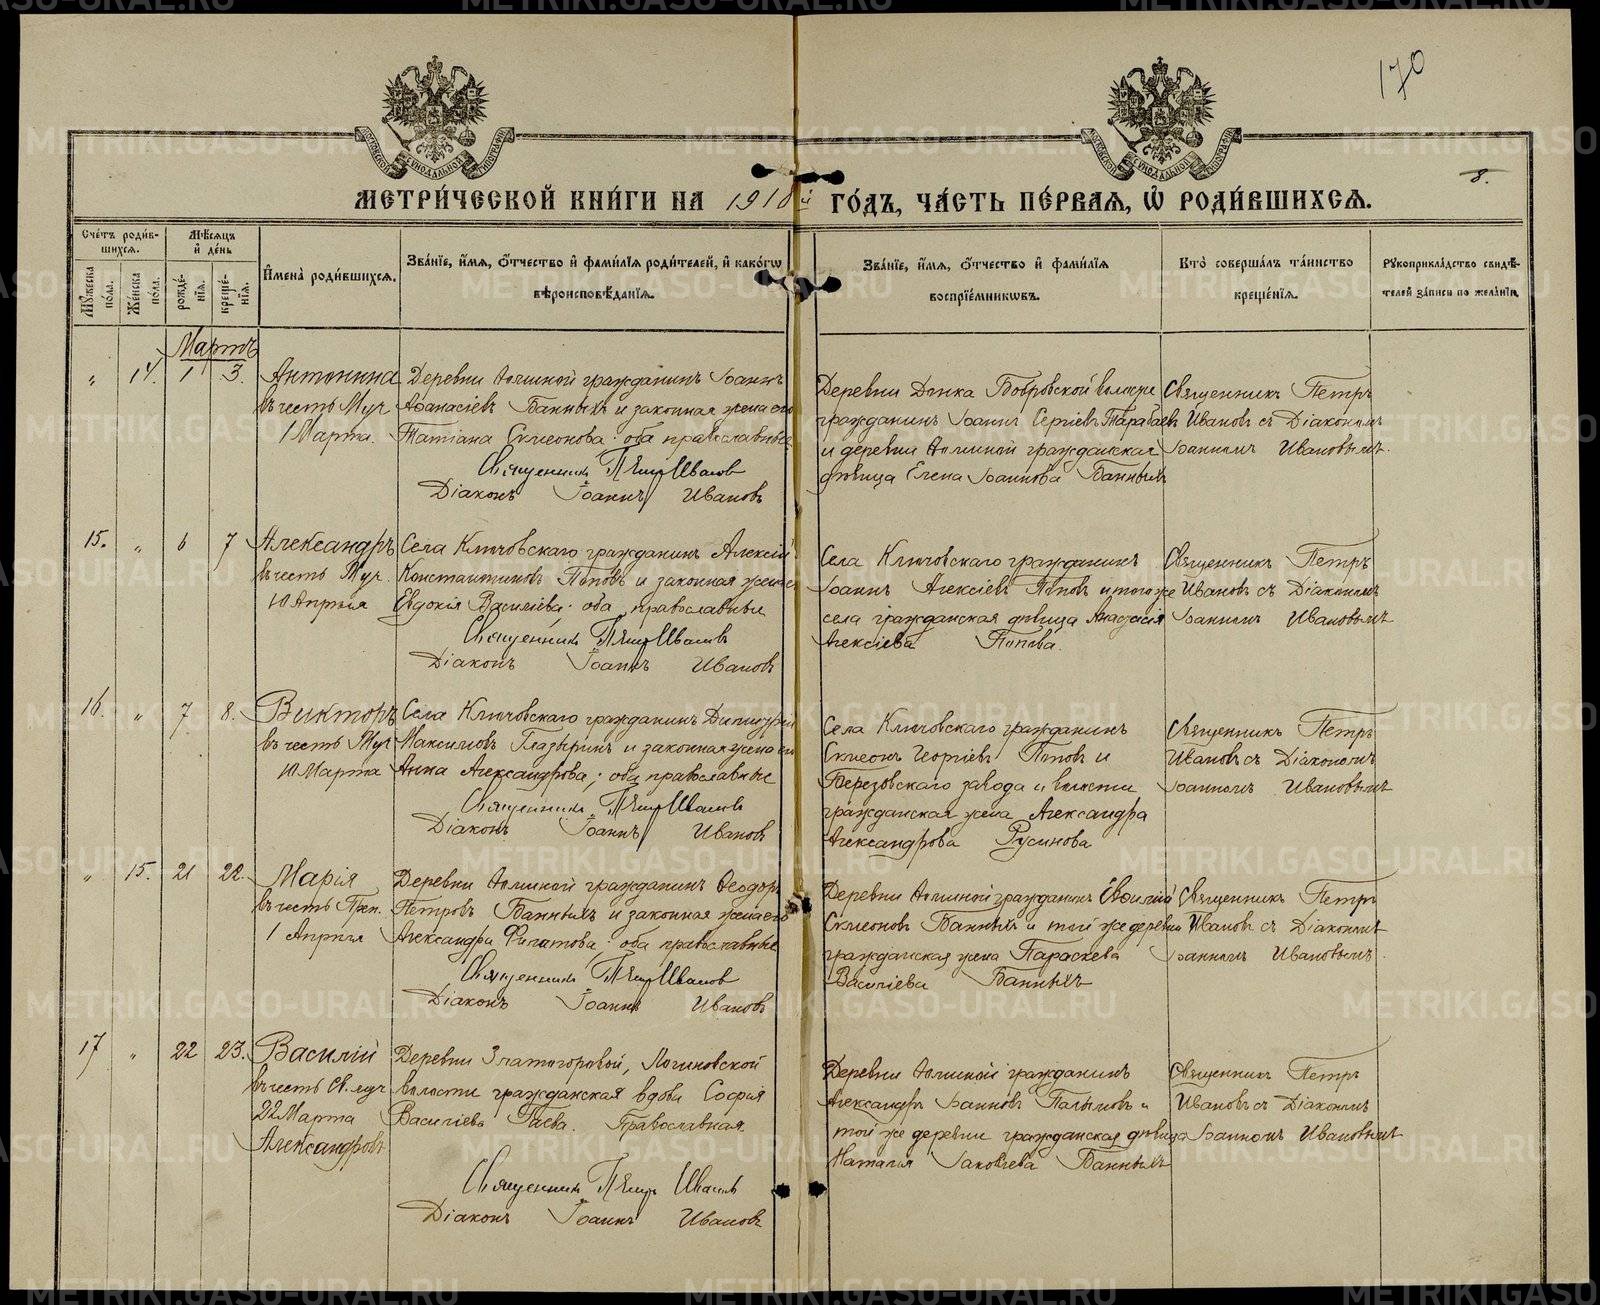 170
8.
МЕТРИ́ЧЕСКОЙ КНИ́ГИ НА 1918й ГО́ДЪ, ЧА́СТЬ ПЕ́РВАЯ, Ѡ РОДИ́ВШИХСЯ.
Сче́тъ роди́вшихся.
Мѣ́сяцъ и де́нь
Му́жеска по́ла.
Же́нска по́ла.
рожде́нія.
креще́нія.
Имена̀ роди́вшихся.
Зва́ніе, и́мя, о́тчество и фами́лія роди́телей, и како́гѡ
вѣроисповѣ́данія.
Зва́ніе, и́мя, о́тчество и фами́лія
воспріе́мникѡвъ.
Кто̀ соверша́лъ та́инство
креще́нія.
Рукоприкла́дство свидѣ́телей за́писи по жела́нію.
Мартъ
" 14. 1 3.
Антонина
въ честь Муч.
1 Марта.
Деревни гражданинъ Іоаннъ
Аѳанасіевъ Банныхъ и законная жена его
Татіана Симеонова: оба православные
Священникъ Петръ Ивановъ
Діаконъ Іоаннъ Ивановъ
Деревни Бобровской волости
гражданинъ Іоаннъ Сергіевъ
и деревни гражданская
дѣвица Елена Іоаннова Банныхъ
Священникъ Петръ
Ивановъ съ Діакономъ
Іоанномъ Ивановымъ.
15. " 6 7
Александръ
въ честь Муч.
10 Апрѣля
Села Ключовскаго гражданинъ Алексій
Константиновъ Поповъ и законная жена его
Евдокія Василіева: оба православные
Священникъ Петръ Ивановъ
Діаконъ Іоаннъ Ивановъ
Села Ключовскаго гражданинъ
Іоаннъ Алексіевъ Поповъ и того же
села гражданская дѣвица Анастасія
Алексіева Попова.
Священникъ Петръ
Ивановъ съ Діакономъ
Іоанномъ Ивановымъ
16. " 7 8.
Викторъ
въ честь Муч
10 Марта
Села Ключовскаго гражданинъ Димитрій
Максимовъ Глазыринъ и законная жена его
Анна Александрова; оба православные
Священникъ Петръ Ивановъ
Діаконъ Іоаннъ Ивановъ
Села Ключовскаго гражданинъ
Симеонъ Георгіевъ Поповъ и
Березовскаго завода и волости
гражданская жена Александра
Александрова Русинова
Священникъ Петръ
Ивановъ съ Діакономъ
Іоанномъ Ивановымъ
" 15. 21 22.
Марія
въ честь Преп.
1 Апрѣля
Деревни гражданинъ Ѳеодоръ
Петровъ Банныхъ и законная жена его
Александра Филатова; оба православные
Священникъ Петръ Ивановъ
Діаконъ Іоаннъ Ивановъ
Деревни гражданинъ
Симеоновъ Банныхъ и той же деревни
гражданская жена Параскева
Василіева Банныхъ
Священникъ Петръ
Ивановъ съ Діакономъ
Іоанномъ Ивановымъ.
17 " 22 23.
Василій
въ честь Св. муч.
22 Марта
Александровъ
Деревни Златогоровой, Логиновской
волости гражданская вдова Софія
Василіева Гаева. Православная.
Священникъ Петръ Ивановъ
Діаконъ Іоаннъ Ивановъ
Деревни гражданинъ
Александръ Іоанновъ и
той же деревни гражданская дѣвица
Наталія Іаковлева Банныхъ
Священникъ Петръ
Ивановъ съ Діакономъ
Іоанномъ Ивановымъ
METRIKI.GASO-URAL.RU